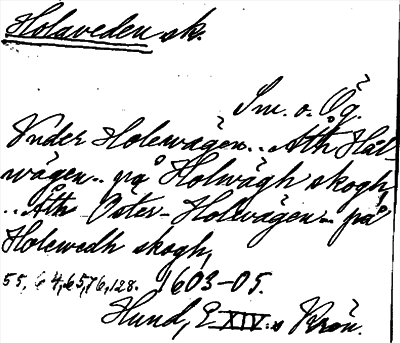 Holaveden sk.
Sm. o. Ög.
Vnder Holewägen.. Åth Hål-
wägen.. på Holwägh skogh,
.. Åth Öster-Holwägen.. på
Holewedh skogh,
55, 64, 65, 76, 128. 1603-05.
Hund, E XIV:s Krön.